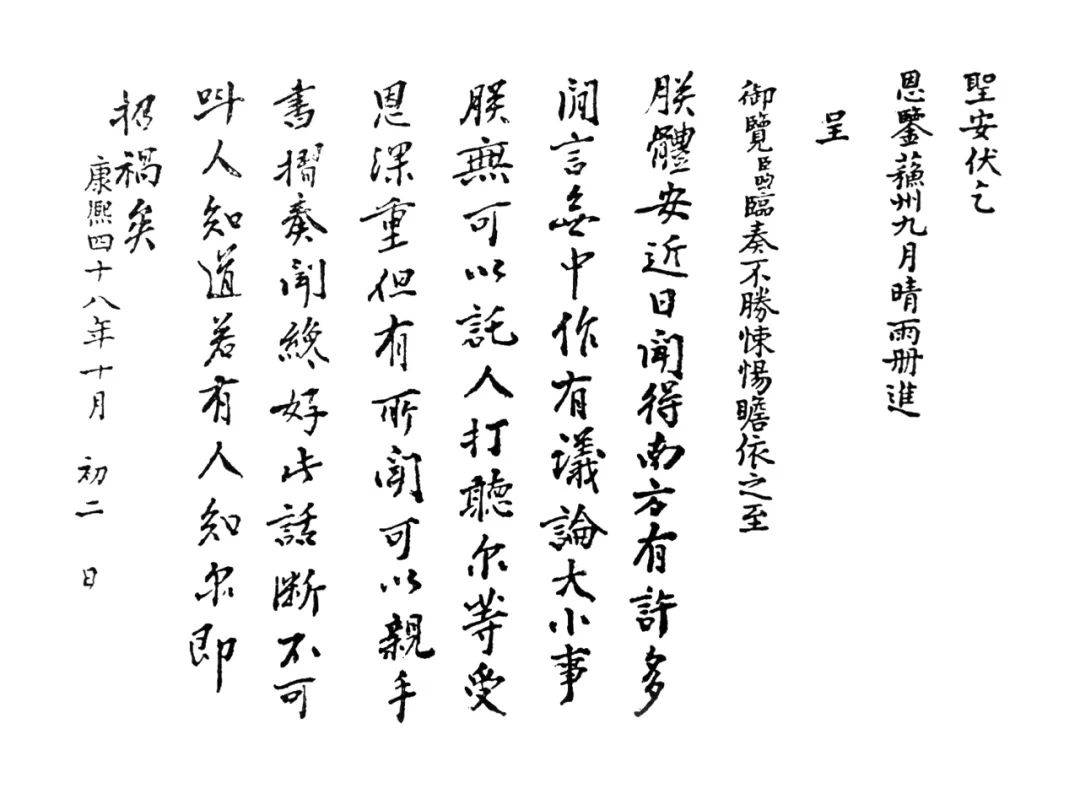 聖安伏乞
恩鑒蘇州九月晴雨册進
呈
御覽臣煦臨奏不勝悚惕瞻依之至
朕體安近日聞得南方有許多
閒言無中作有議論大小事
朕無可以託人打聽尔等受
恩深重但有所聞可以親手
書摺奏聞纔好此話断不可
呌人知道若有人知尔即
招禍矣
康熙四十八年十月 初二 日